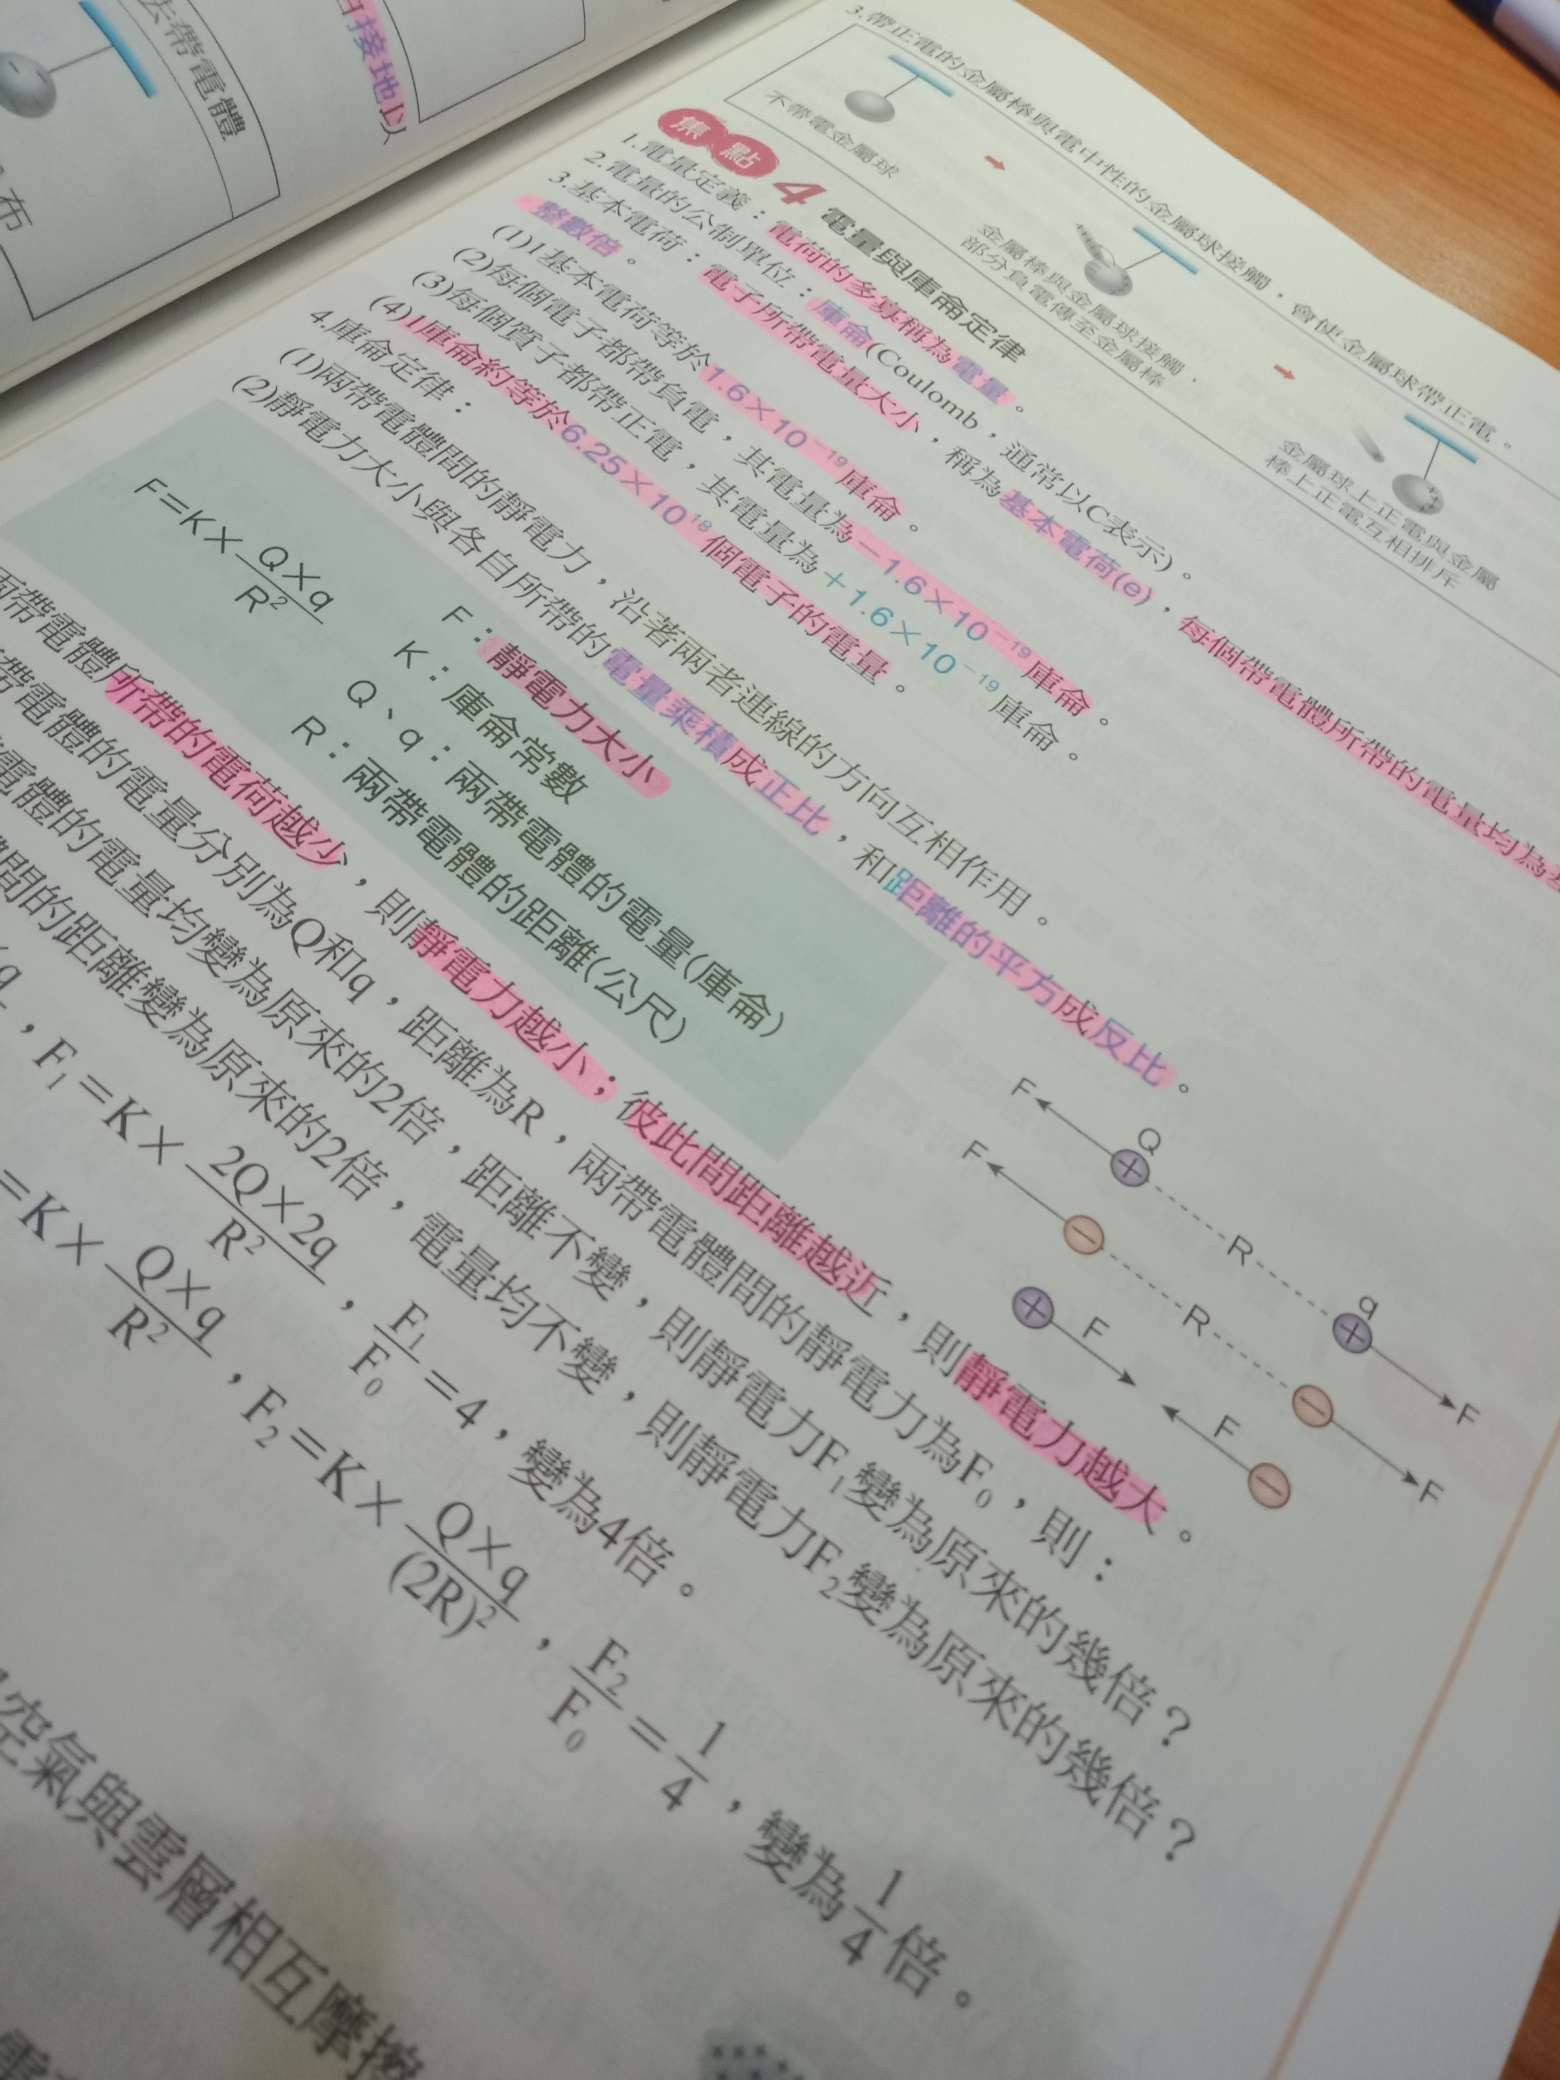 法帶電體
接地以
布
3.帶正電的金屬棒與電中性的金屬球接觸，會使金屬球帶正電。
不帶電金屬球
金屬棒與金屬球接觸，
部分負電傳至金屬棒
金屬球上正電與金屬
棒上正電互相排斥
焦點4 電量與庫侖定律
1.電量定義：電荷的多寡稱為電量。
2.電量的公制單位：庫侖(Coulomb，通常以C表示)。
3.基本電荷：電子所帶電量大小，稱為基本電荷(e)，每個帶電體所帶的電量均為
整數倍。
(1)1基本電荷等於1.6×10⁻¹⁹庫侖。
(2)每個電子都帶負電，其電量為－1.6×10⁻¹⁹庫侖。
(3)每個質子都帶正電，其電量為＋1.6×10⁻¹⁹庫侖。
(4)1庫侖約等於6.25×10¹⁸個電子的電量。
4.庫侖定律：
(1)兩帶電體間的靜電力，沿著兩者連線的方向互相作用。
(2)靜電力大小與各自所帶的電量乘積成正比，和距離的平方成反比。
F＝K×Q×q/R²
F：靜電力大小
K：庫侖常數
Q、q：兩帶電體的電量(庫侖)
R：兩帶電體的距離(公尺)
F Q R q F
F R F
F F
兩帶電體所帶的電荷越少，則靜電力越小；彼此間距離越近，則靜電力越大。
帶電體的電量分別為Q和q，距離為R，兩帶電體間的靜電力為F₀，則：
電體的電量均變為原來的2倍，距離不變，則靜電力F₁變為原來的幾倍？
間的距離變為原來的2倍，電量均不變，則靜電力F₂變為原來的幾倍？
q，F₁＝K×2Q×2q/R²，F₁/F₀＝4，變為4倍。
＝K×Q×q/R²，F₂＝K×Q×q/(2R)²，F₂/F₀＝1/4，變為1/4倍。
空氣與雲層相互摩擦